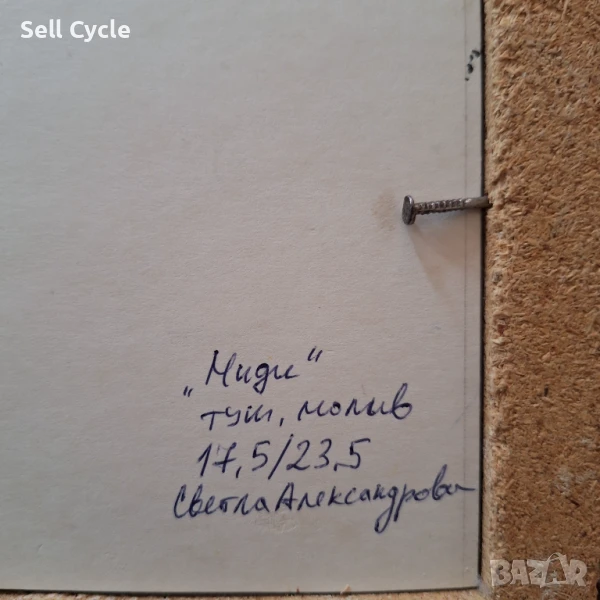 Sell Cycle
„Миди“
туш, молив
17,5/23,5
Светла Александрова
BAZAR